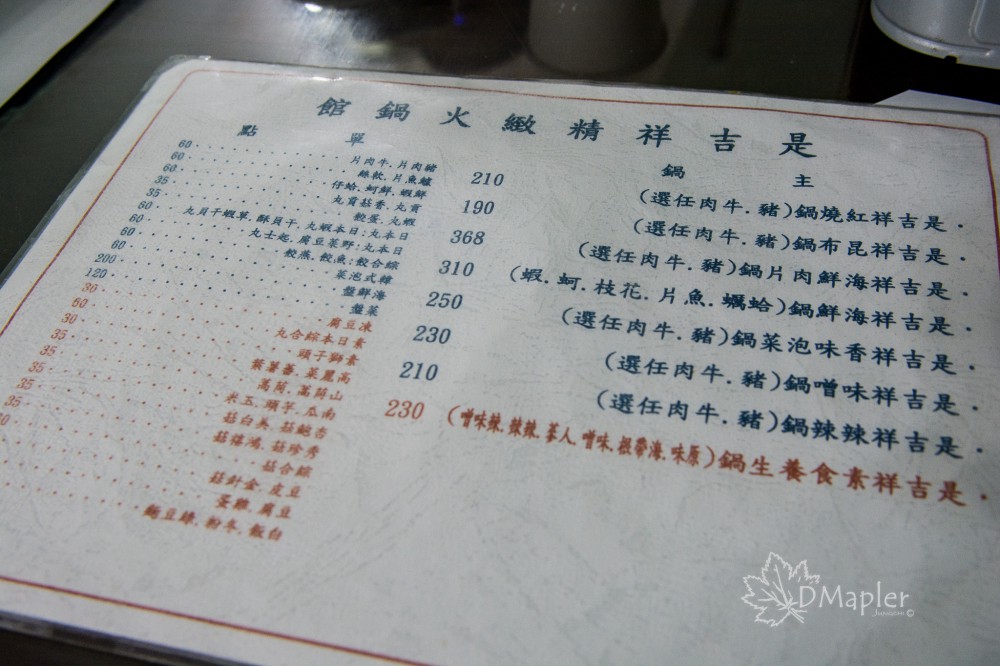 是吉祥精緻火鍋館
主鍋
・是吉祥紅燒鍋(豬.牛肉任選) 210
・是吉祥昆布鍋(豬.牛肉任選) 190
・是吉祥海鮮肉片鍋(豬.牛肉任選) 368
・是吉祥海鮮鍋(蛤蠣.魚片.花枝.蚵.蝦) 310
・是吉祥香味泡菜鍋(豬.牛肉任選) 250
・是吉祥味噌鍋(豬.牛肉任選) 230
・是吉祥辣辣鍋(豬.牛肉任選) 210
・是吉祥素食養生鍋(原味.海帶根.味噌.人蔘.辣辣.辣味噌) 230
單點
豬肉片.牛肉片 60
鱸魚片.軟絲 60
鮮蝦.鮮蚵.蛤仔 60
貢丸.香菇貢丸 35
蝦丸.蛋餃 35
日本丸:日本蝦丸.干貝酥.單蝦干貝丸 60
日本丸:野菜豆腐.起士丸 60
綜合餃:魚餃.燕餃 60
韓式泡菜 60
海鮮盤 200
菜盤 120
凍豆腐 30
素日本綜合丸 60
素獅子頭 30
高麗菜.蕃薯 35
山茼蒿.茼蒿 35
南瓜.芋頭.玉米 35
杏鮑菇.美白菇 35
秀珍菇.鴻禧菇 35
綜合菇
豆皮.金針菇
豆腐.雞蛋
白飯.冬粉.綠豆麵
DMapler